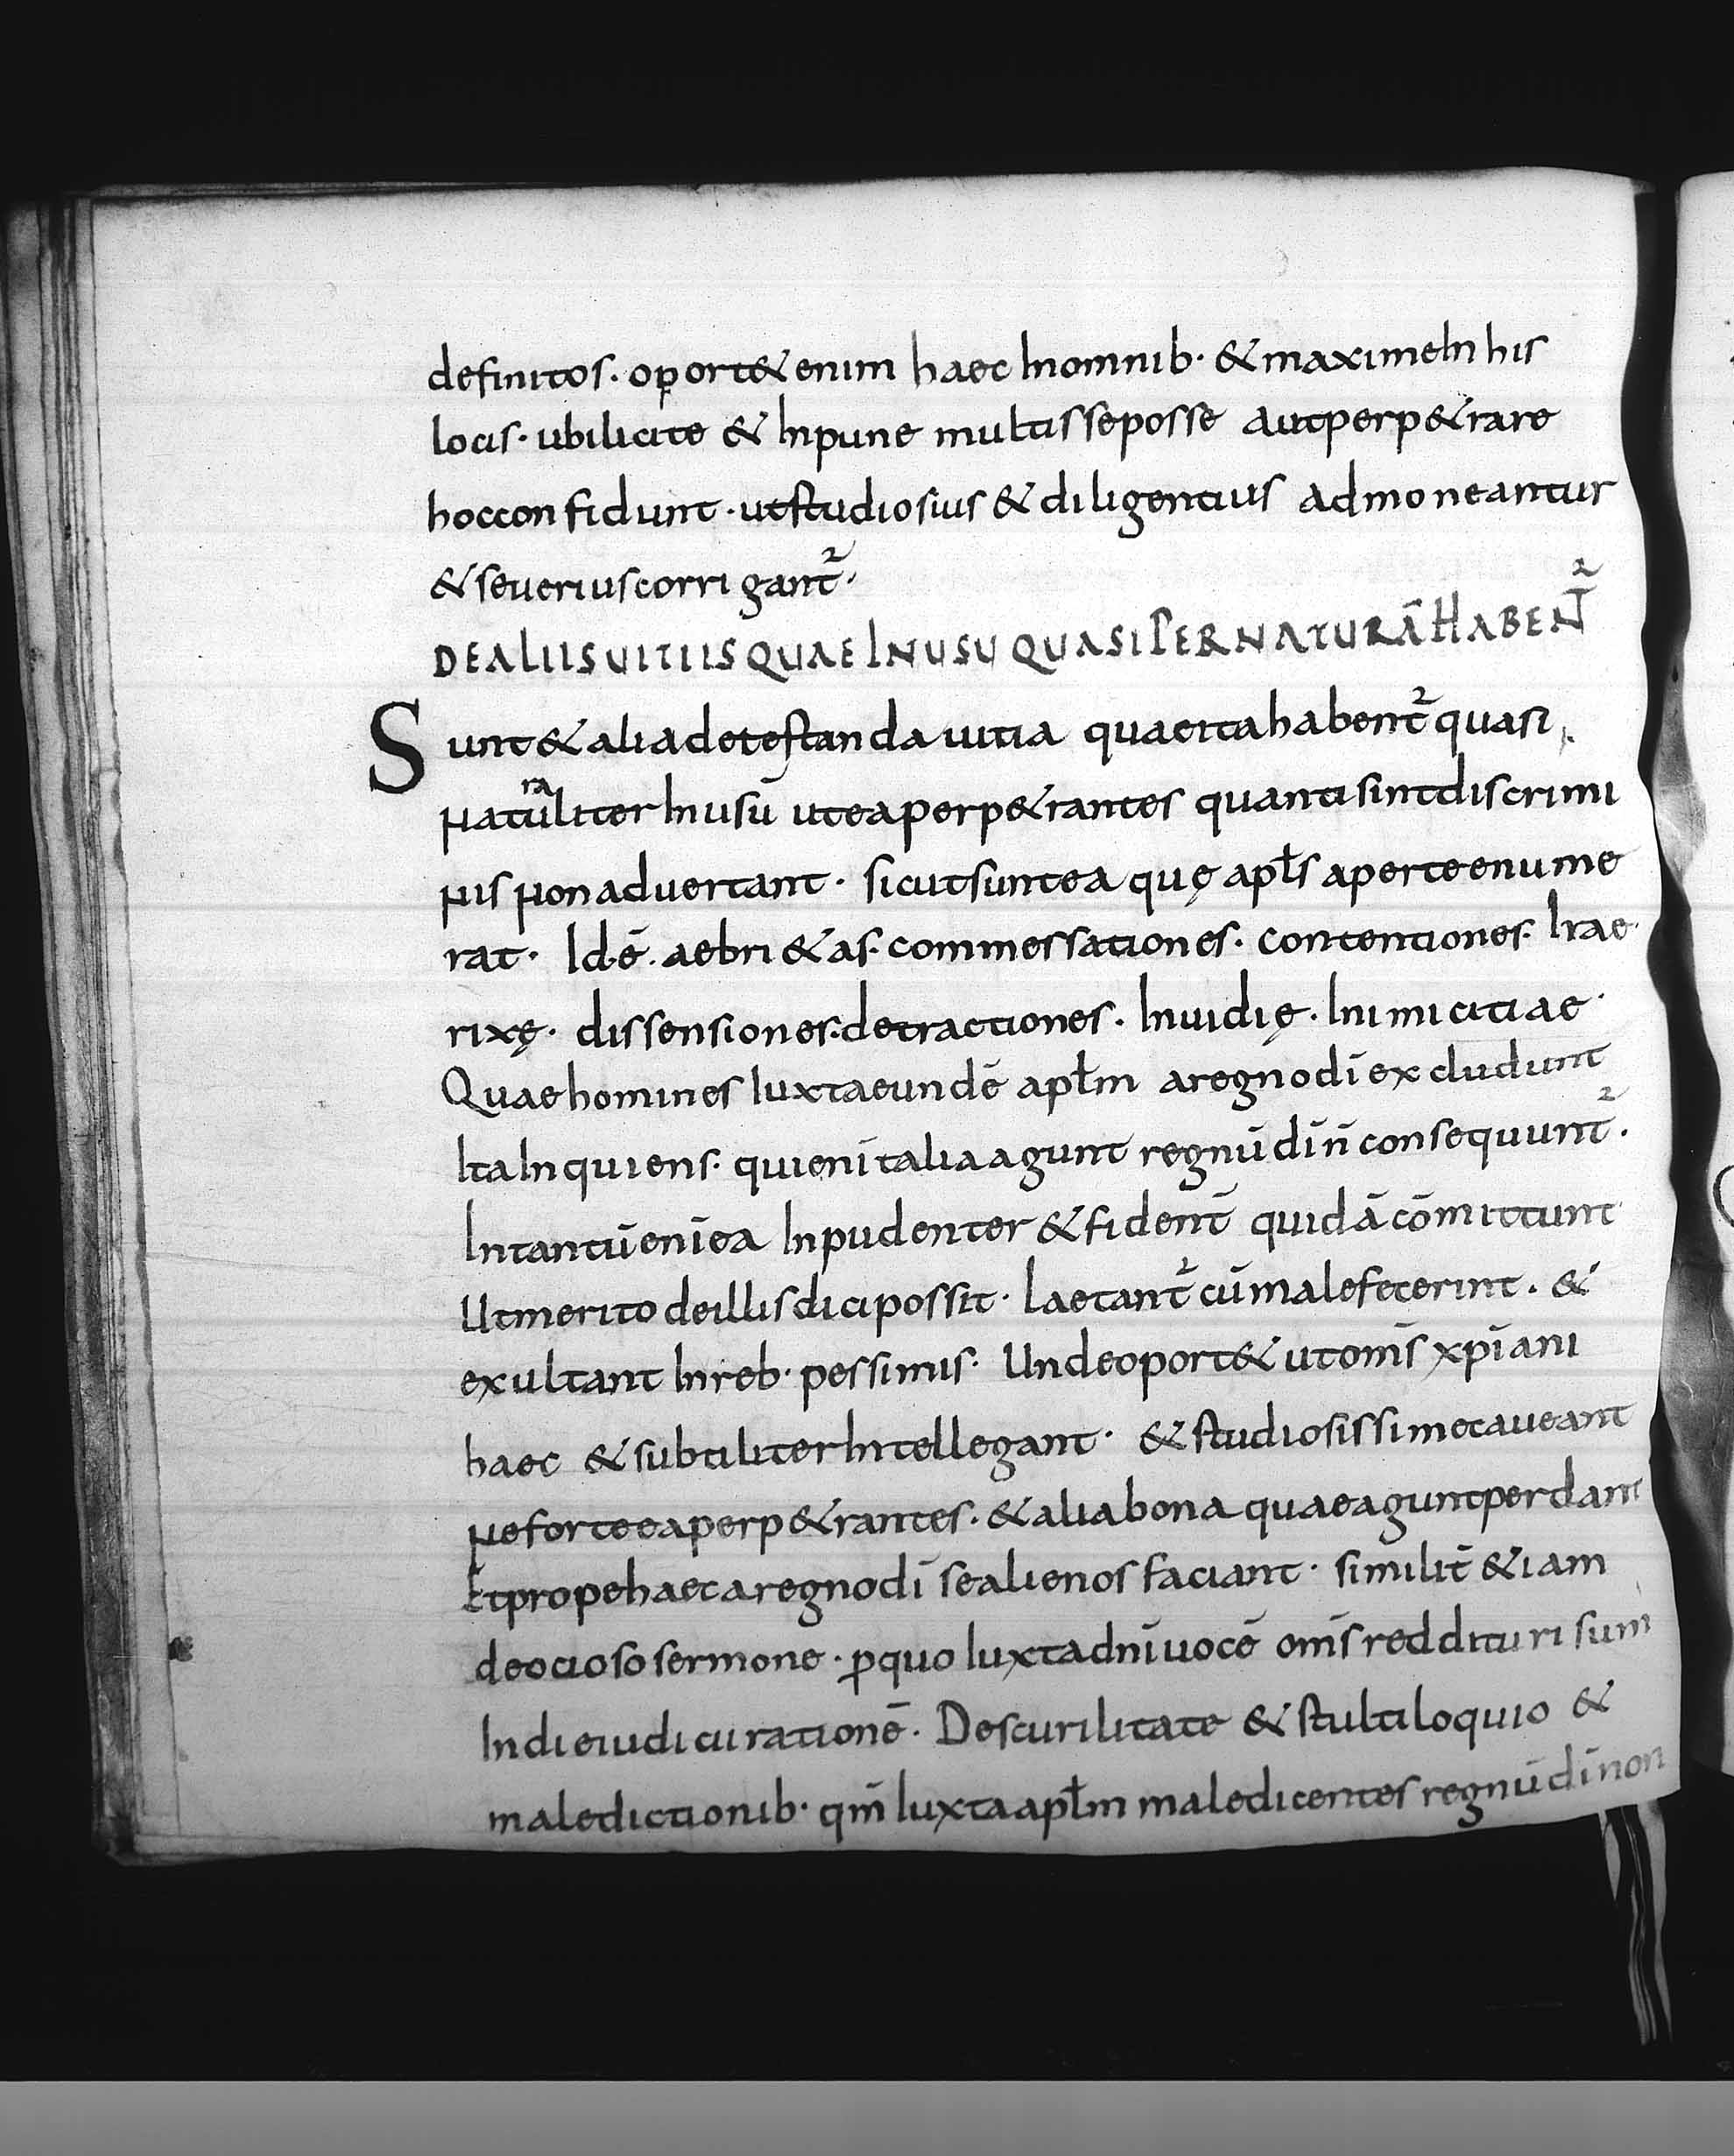 definitos· oport& enim haec Inomnib· & maximeIn his
locis· ubilicite & Inpune multisseposse autperp&rare
hocconfidunt· utstudiosius & diligentius admoneantur
& seueriuscorrigant᷑·
DEALIISUITIISQUAEINUSUQUASIPERNATURĀHABENT᷑
Sunt&aliadetestandauitia quaeitahabent᷑quasi
naturaliterInusū uteaperp&rantes quantisintdiscrimi
nisnonaduertant· sicutsuntea quę apƚs aperteenume
rat· Id·ē· aebri&as· commessationes· contentiones· Irae·
rixę· dissensiones·detractiones· Inuidię· Inimicitiae·
Quaehomines Iuxtaeundē apƚm aregnodī excludunt
ItaInquiens· quienī taliaagunt regnū dī n̄ consequunt᷑·
Intantūenīea Inpudenter & fident̄ quidā cōmittunt
Utmerito deillisdicipossit· Laetant᷑ cūmalefecerint· &
exultant Inreb· pessimis· Undeoport& utom̄s xp̄iani
haec & subtiliterIntellegant· & studiosissimecaueant
neforteeaperp&rantes· &aliabona quaeaguntperdant
Etpropehaecaregnodī sealienos faciant· similit̄ &iam
deociososermone· ꝑquo Iuxtadn̄iuocē om̄s reddituri sum
Indieiudiciirationē· Descurilitate & stultiloquio &
maledictionib· qm̄ Iuxtaapƚm maledicentes regnū dī non